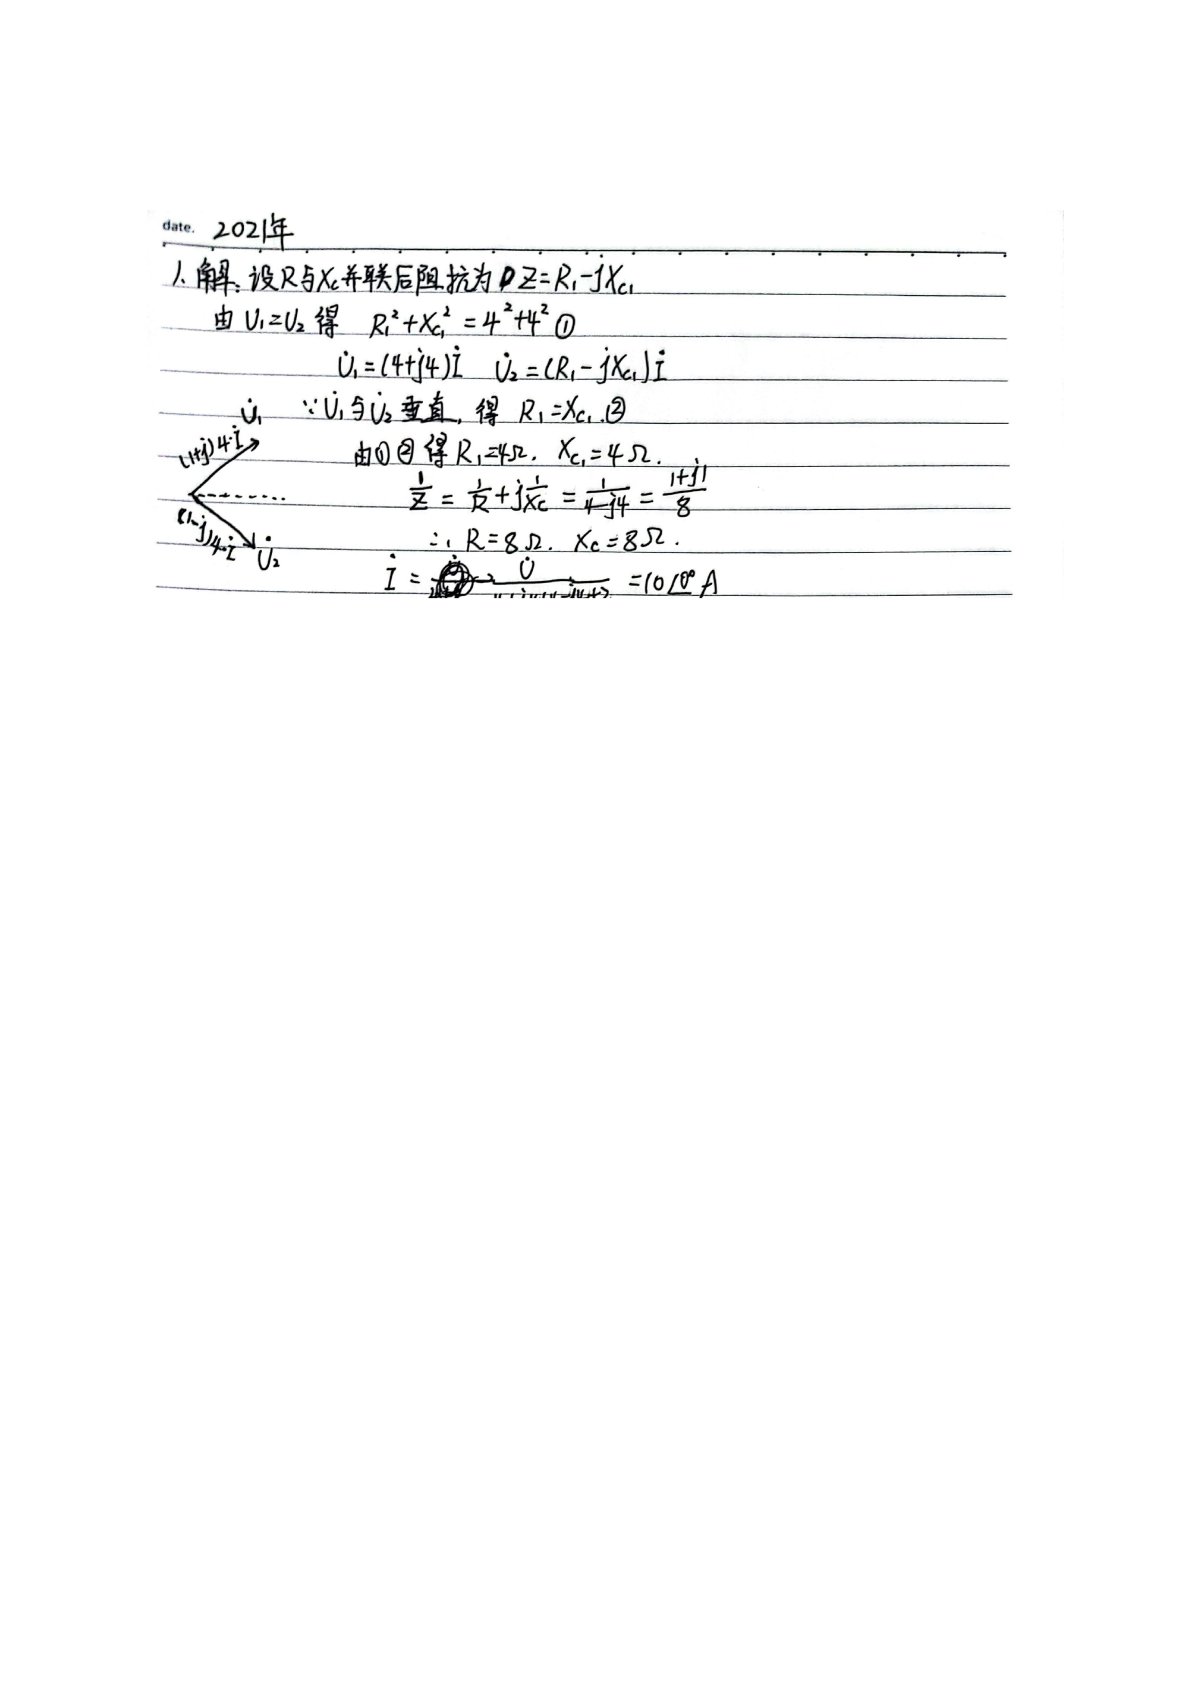 date. 2021年
1. 解: 设R与Xc并联后阻抗为 Z=R₁-jXc₁
由 U₁=U₂ 得 R₁²+Xc₁²=4²+4² ①
U̇₁=(4+j4)İ U̇₂=(R₁-jXc₁)İ
∵U̇₁与U̇₂垂直, 得 R₁=Xc₁.②
由①②得 R₁=4Ω. Xc₁=4Ω.
1/Z = 1/R + j1/Xc = 1/(4-j4) = (1+j1)/8
∴ R=8Ω. Xc=8Ω.
İ = U̇ =10∠0° A
U̇₁
(1+j)4·İ
(1-j)4·İ
U̇₂